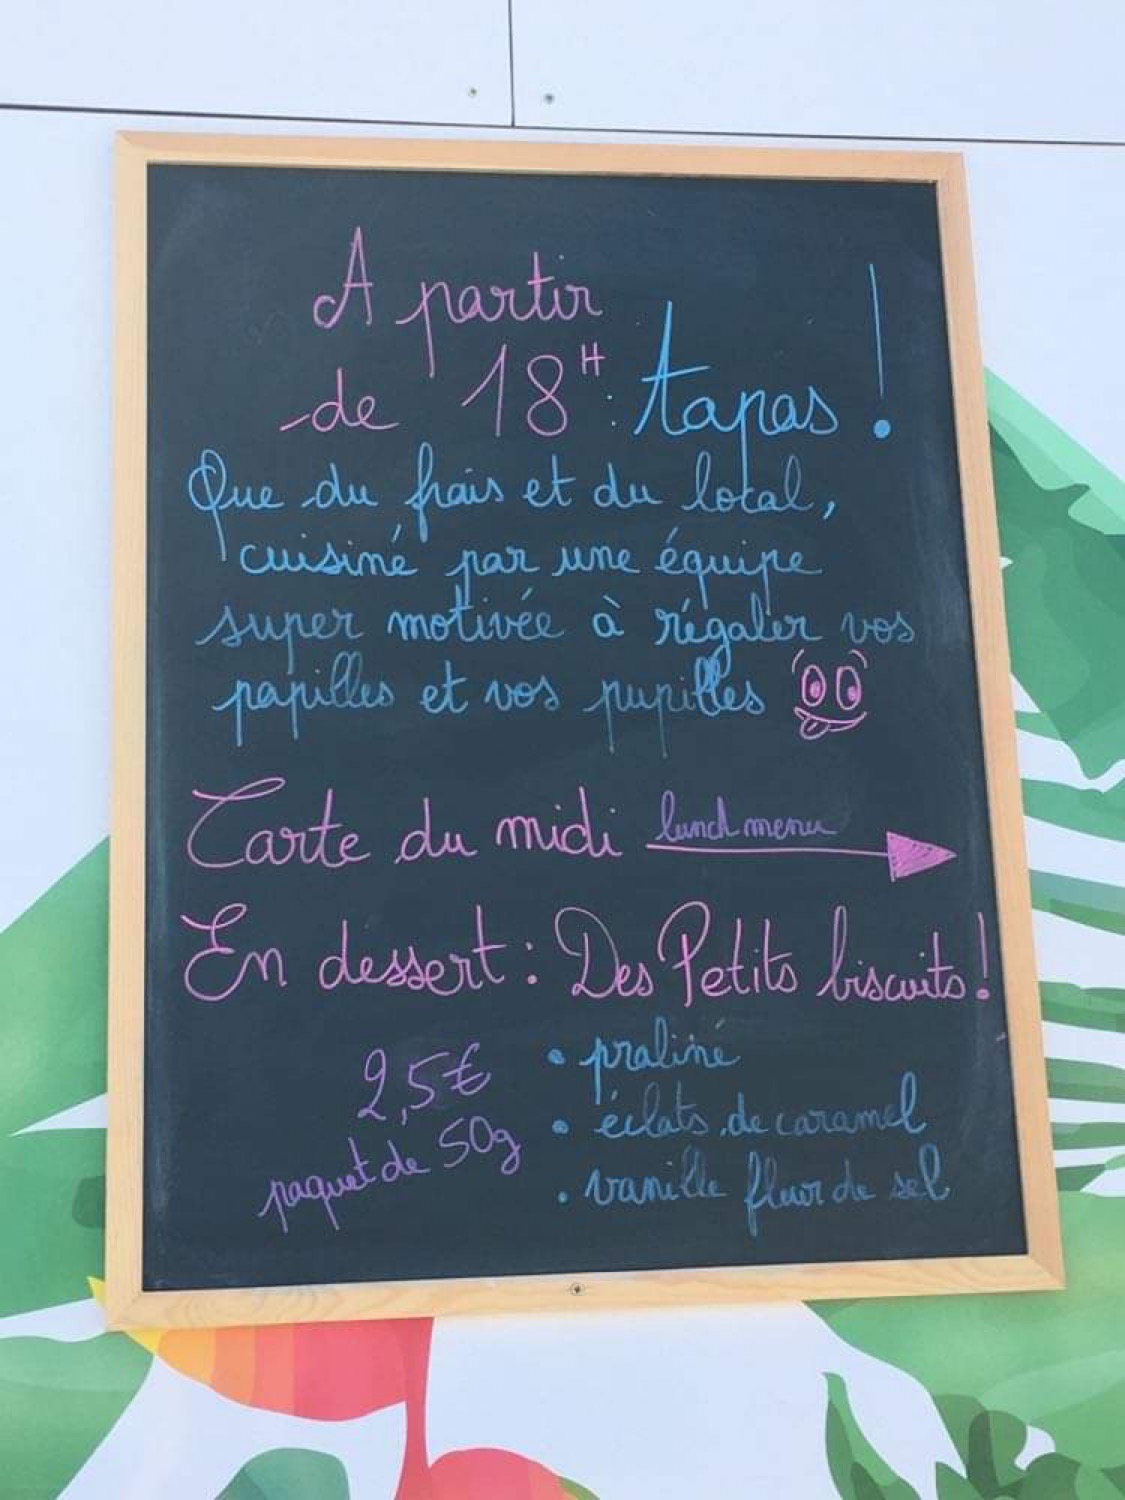 A partir
de 18H : tapas !
Que du frais et du local,
cuisiné par une équipe
super motivée à régaler vos
papilles et vos pupilles
Carte du midi lunch menu
En dessert : Des Petits biscuits !
2,5€
paquet de 50g
• praliné
• éclats de caramel
• vanille fleur de sel